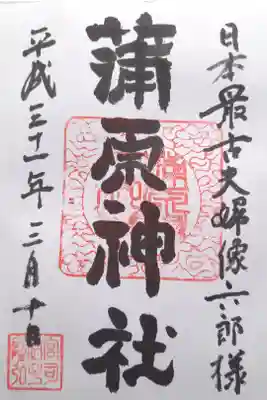 日本最古夫婦像六郎様
蒲原神社
平成三十一年三月十日